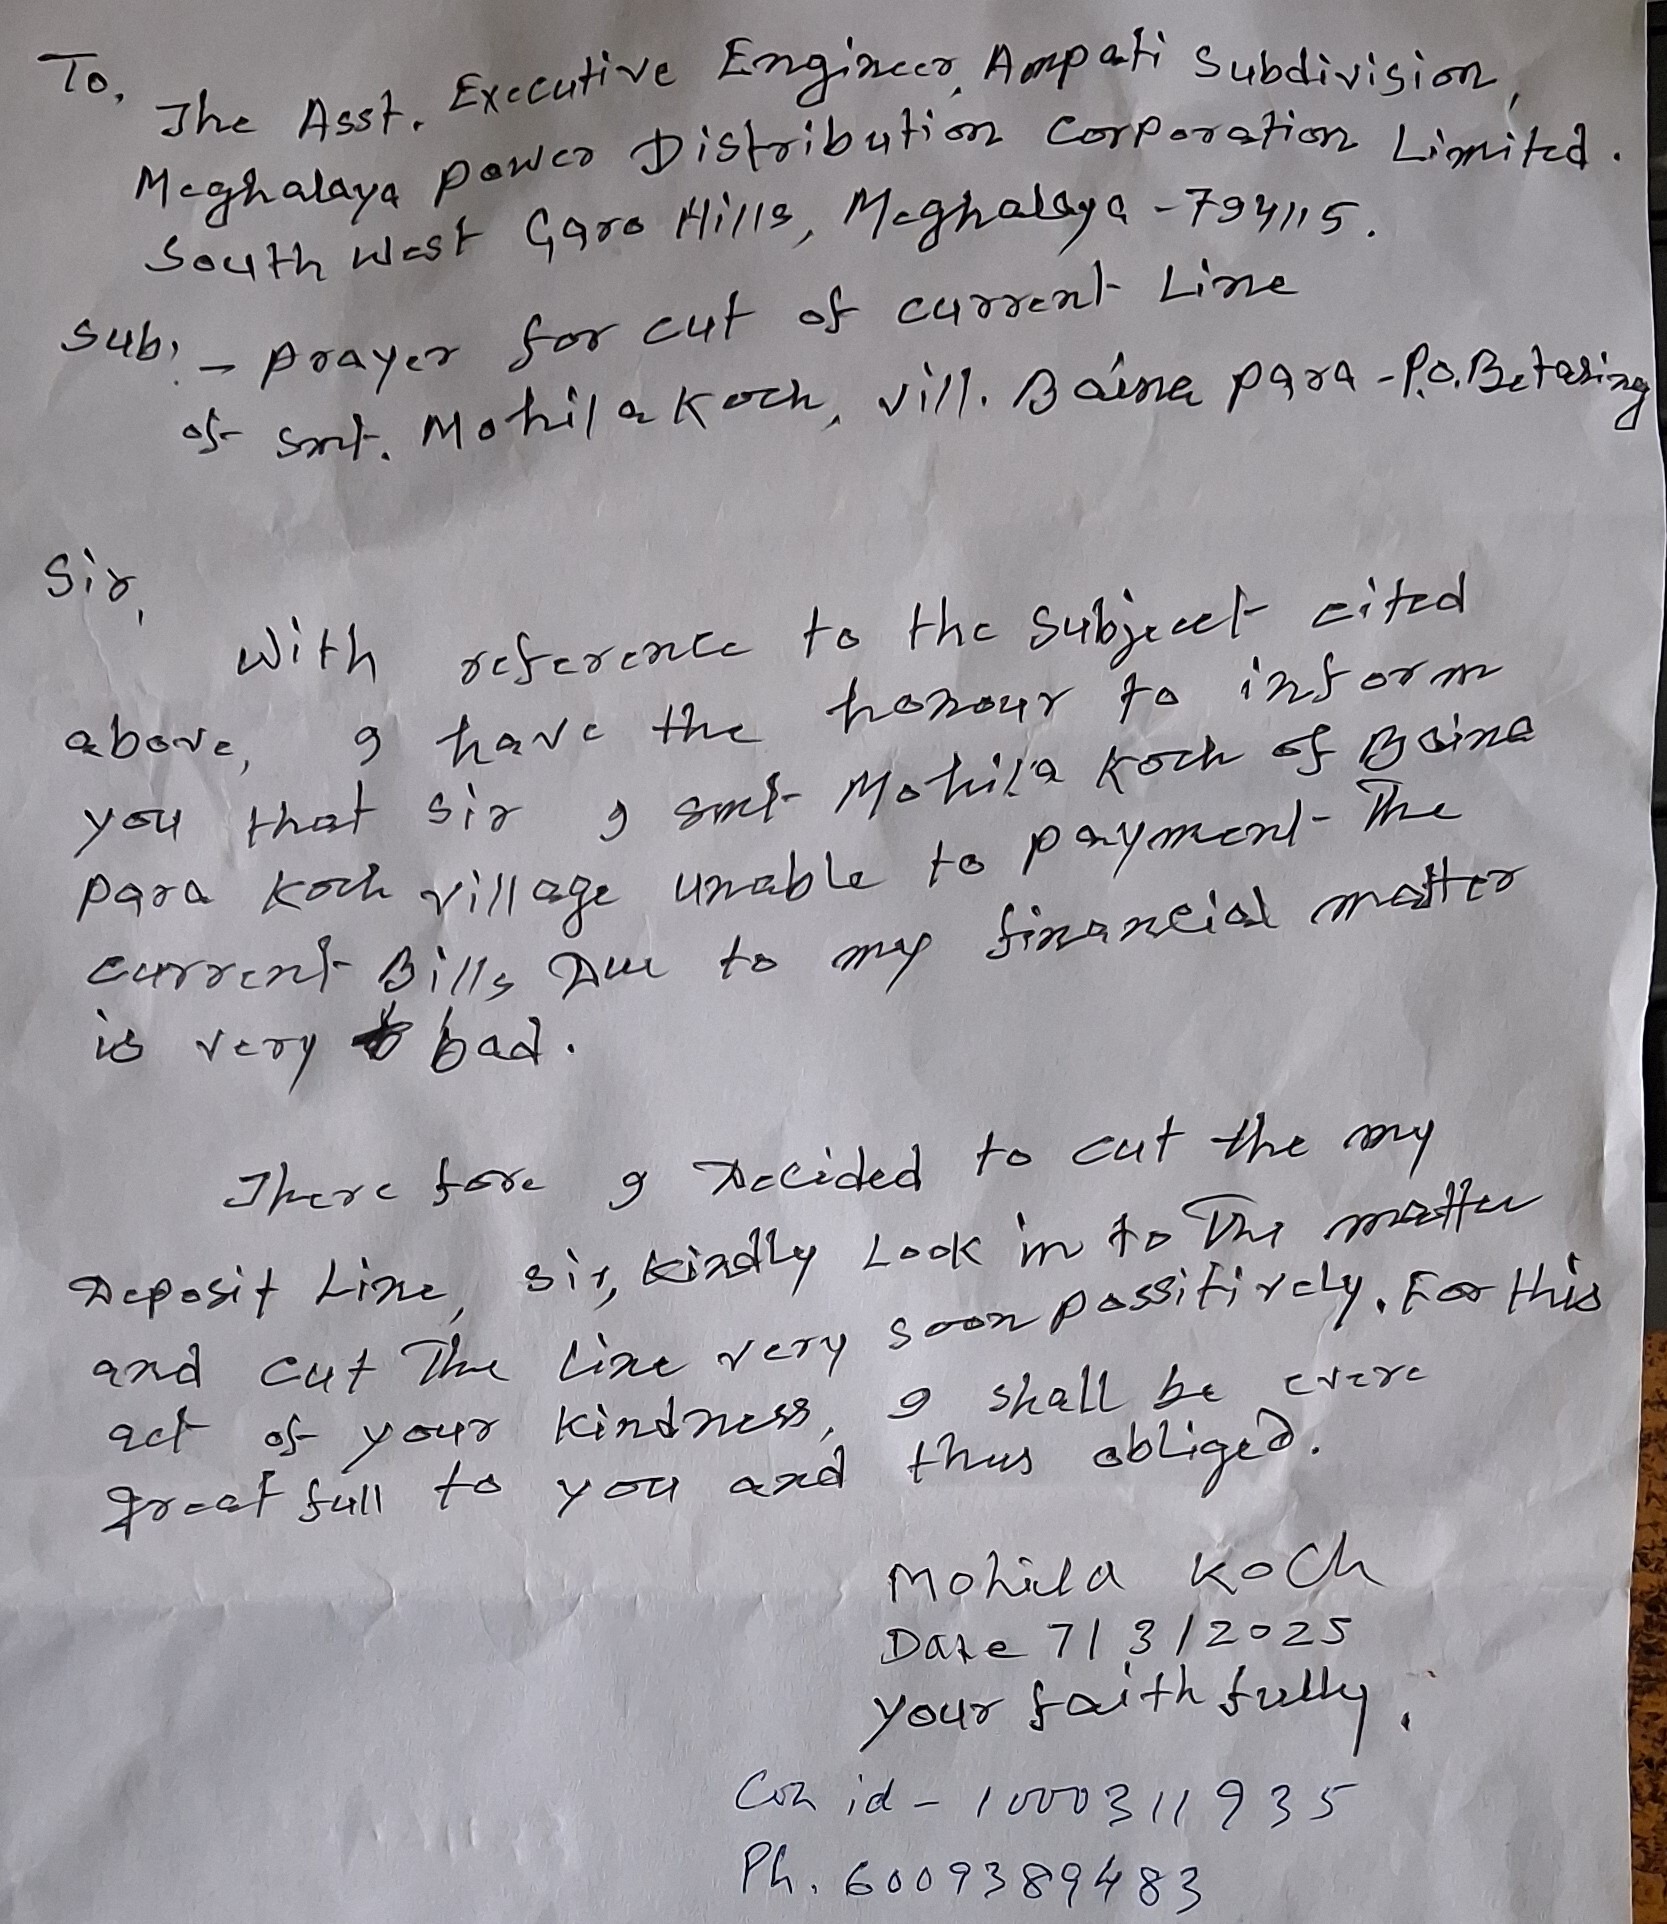 To,
The Asst. Executive Engineer, Ampati Subdivision,
Meghalaya power Distribution Corporation Limited.
South West Garo Hills, Meghalaya - 794115.
Sub: - prayer for cut of current Line
of Smt. Mohila Koch, vill. Baina para - P.O. Betasing
Sir,
With reference to the Subjecet cited
above, I have the honour to inform
you that Sir I smt Mohila Koch of Baina
para Koch village unable to payment The
current Bills, Due to my financial matter
is very bad.
There fore I Decided to cut the my
Deposit Line, sir, kindly Look in to The matter
and cut The line very soon possitively. For this
act of your kindness, I shall be evere
great full to you and thus obliged.
Mohila Koch
Date 7/3/2025
your faith fully,
Con id - 1000311935
Ph. 6009389483